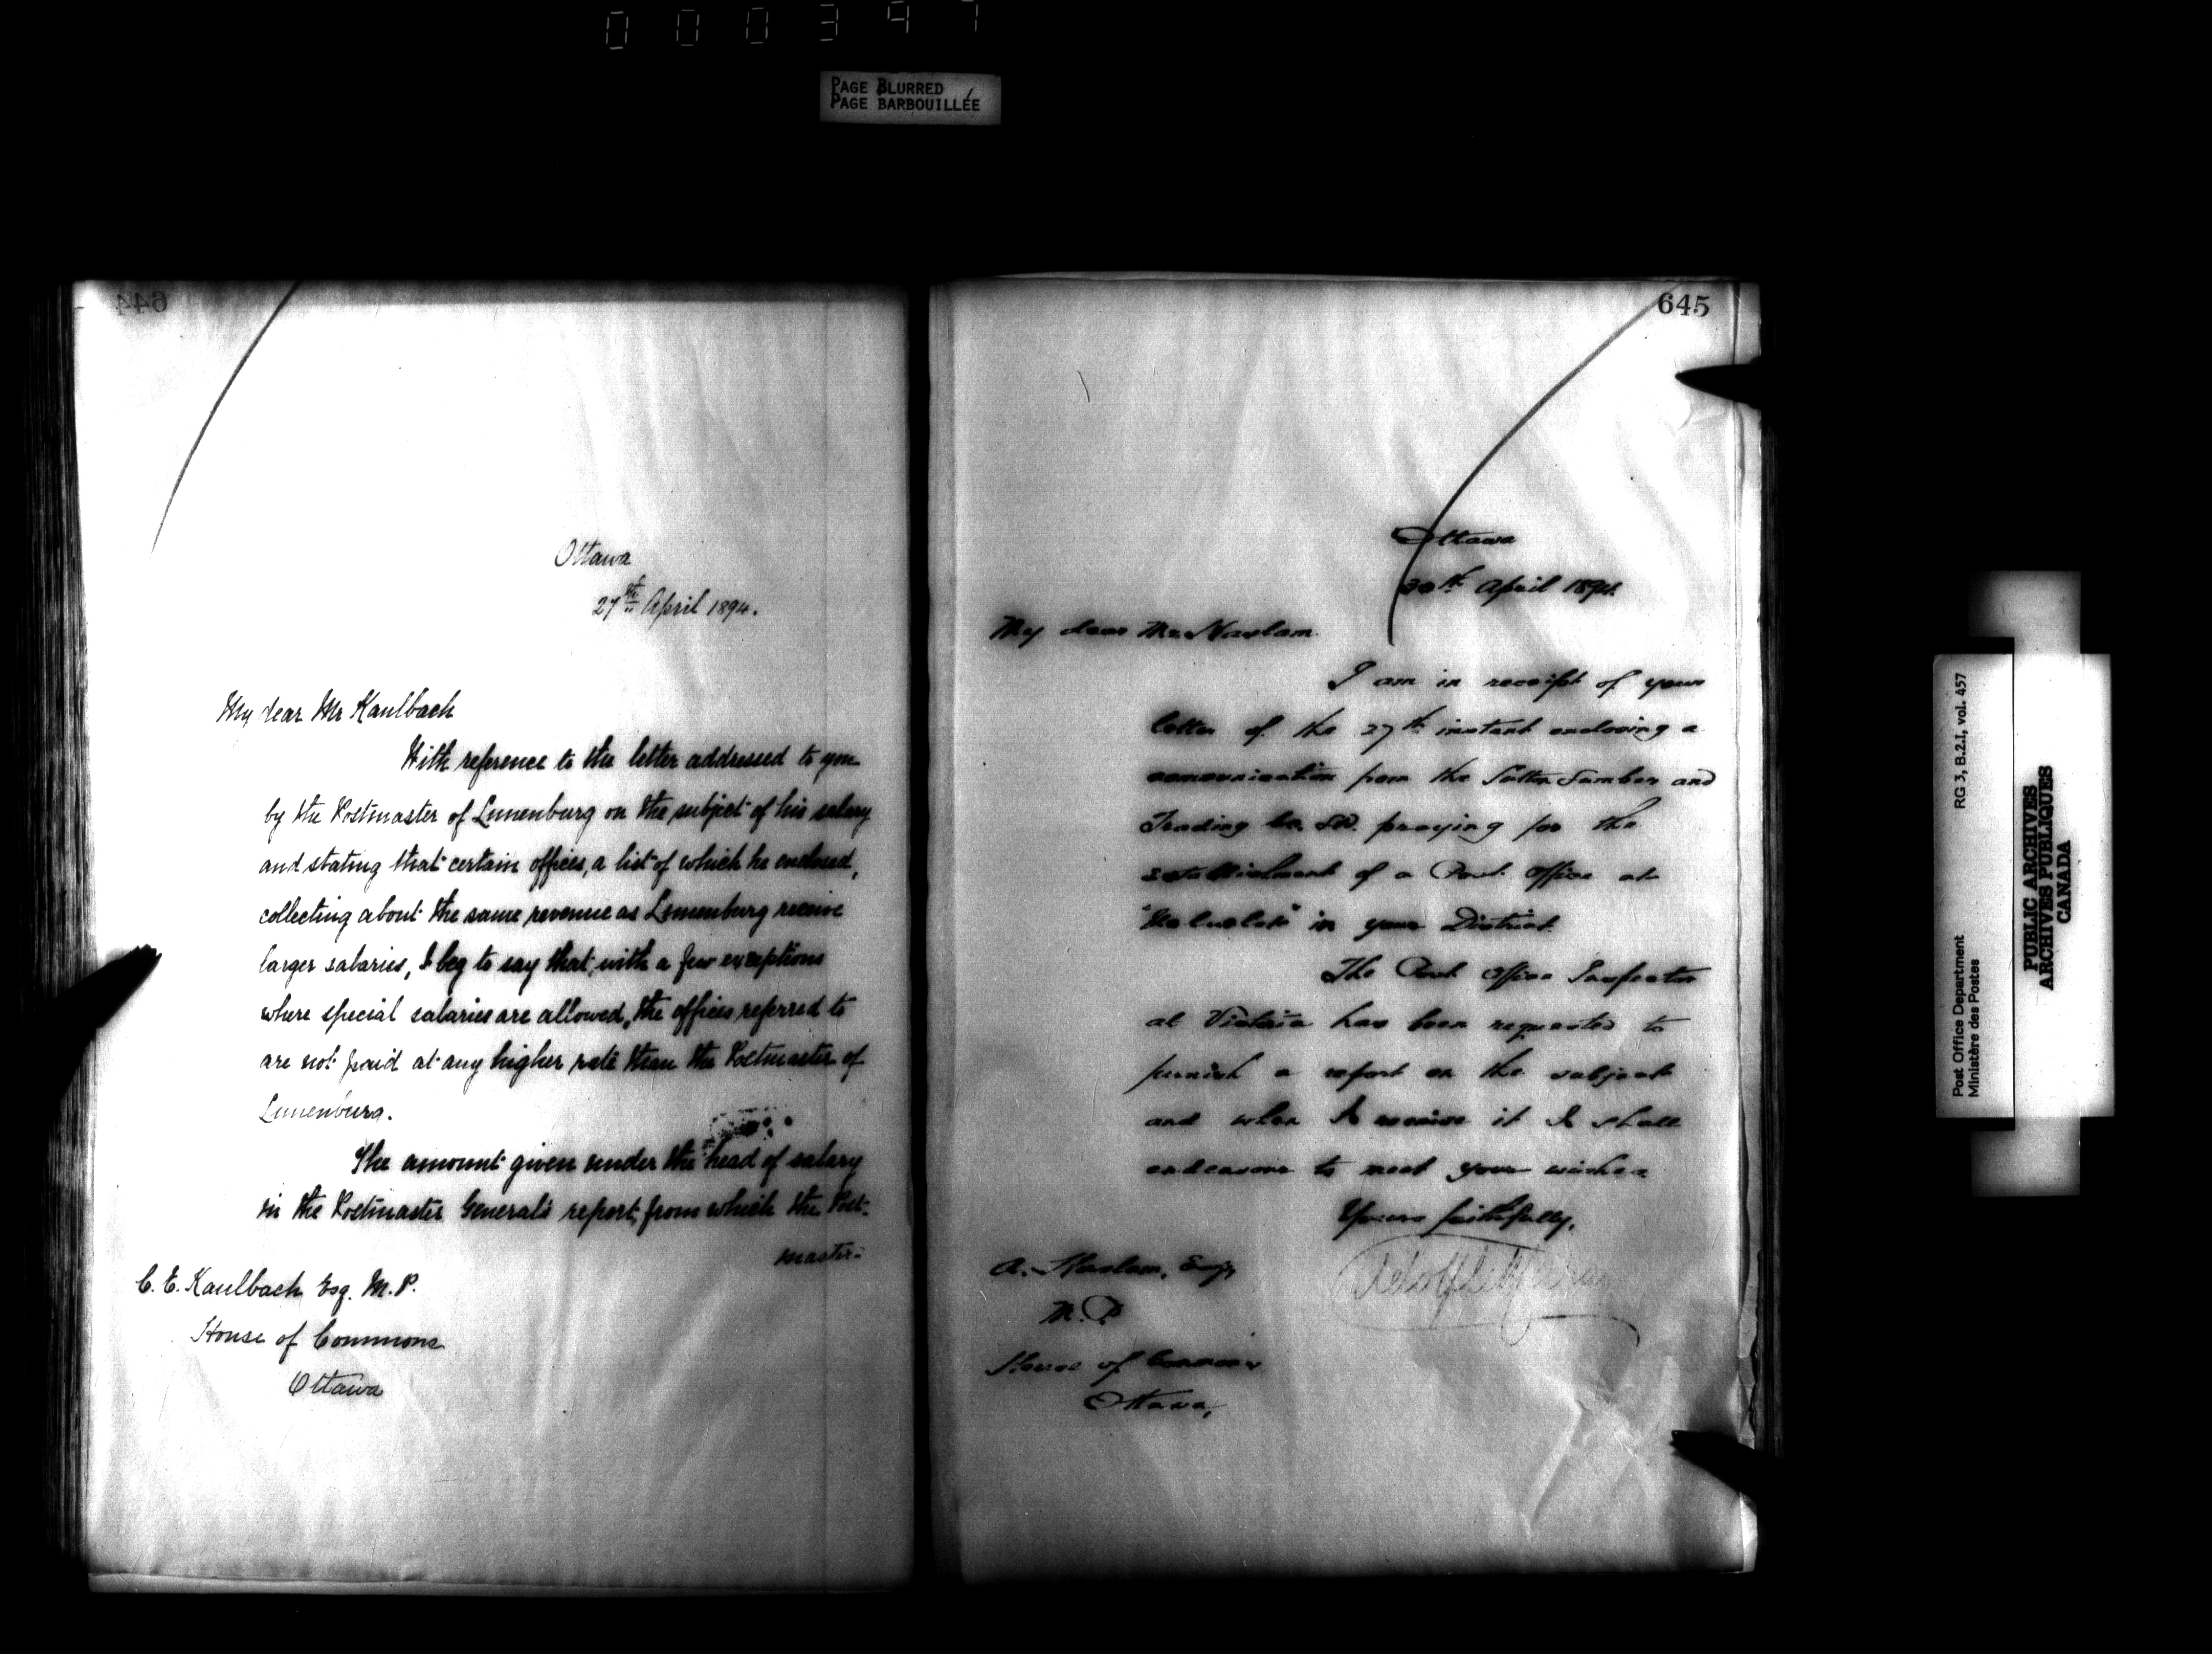 000397
PAGE BLURRED
PAGE BARBOUILLÉE
644
Ottawa
27th April 1894.
My dear Mr Kaulbach
With reference to the letter addressed to you
by the Postmaster of Lunenburg on the subject of his salary
and stating that certain offices, a list of which he enclosed,
collecting about the same revenue as Lunenburg receive
larger salaries, I beg to say that, with a few exceptions
where special salaries are allowed, the offices referred to
are not paid at any higher rate than the Postmaster of
Lunenburg.
The amount given under the head of salary
in the Postmaster General's report, from which the Post-
master-
C. E. Kaulbach Esq. M. P.
House of Commons
Ottawa
645
Ottawa
30th April 1894
My dear Mr Haslam.
I am in receipt of your
letter of the 27th instant enclosing a
communication from the Sutton Lumber and
Trading Co. Ld. praying for the
establishment of a Post Office at
in your District.
The Post Office Inspector
at Victoria has been requested to
furnish a report on the subject
and when I receive it I shall
endeavour to meet your wishes
Yours faithfully,
A. Haslam, Esq,
M. P.
House of Commons
Ottawa,
Post Office Department
Ministère des Postes
RG 3, B.2.I, vol. 457
PUBLIC ARCHIVES
ARCHIVES PUBLIQUES
CANADA